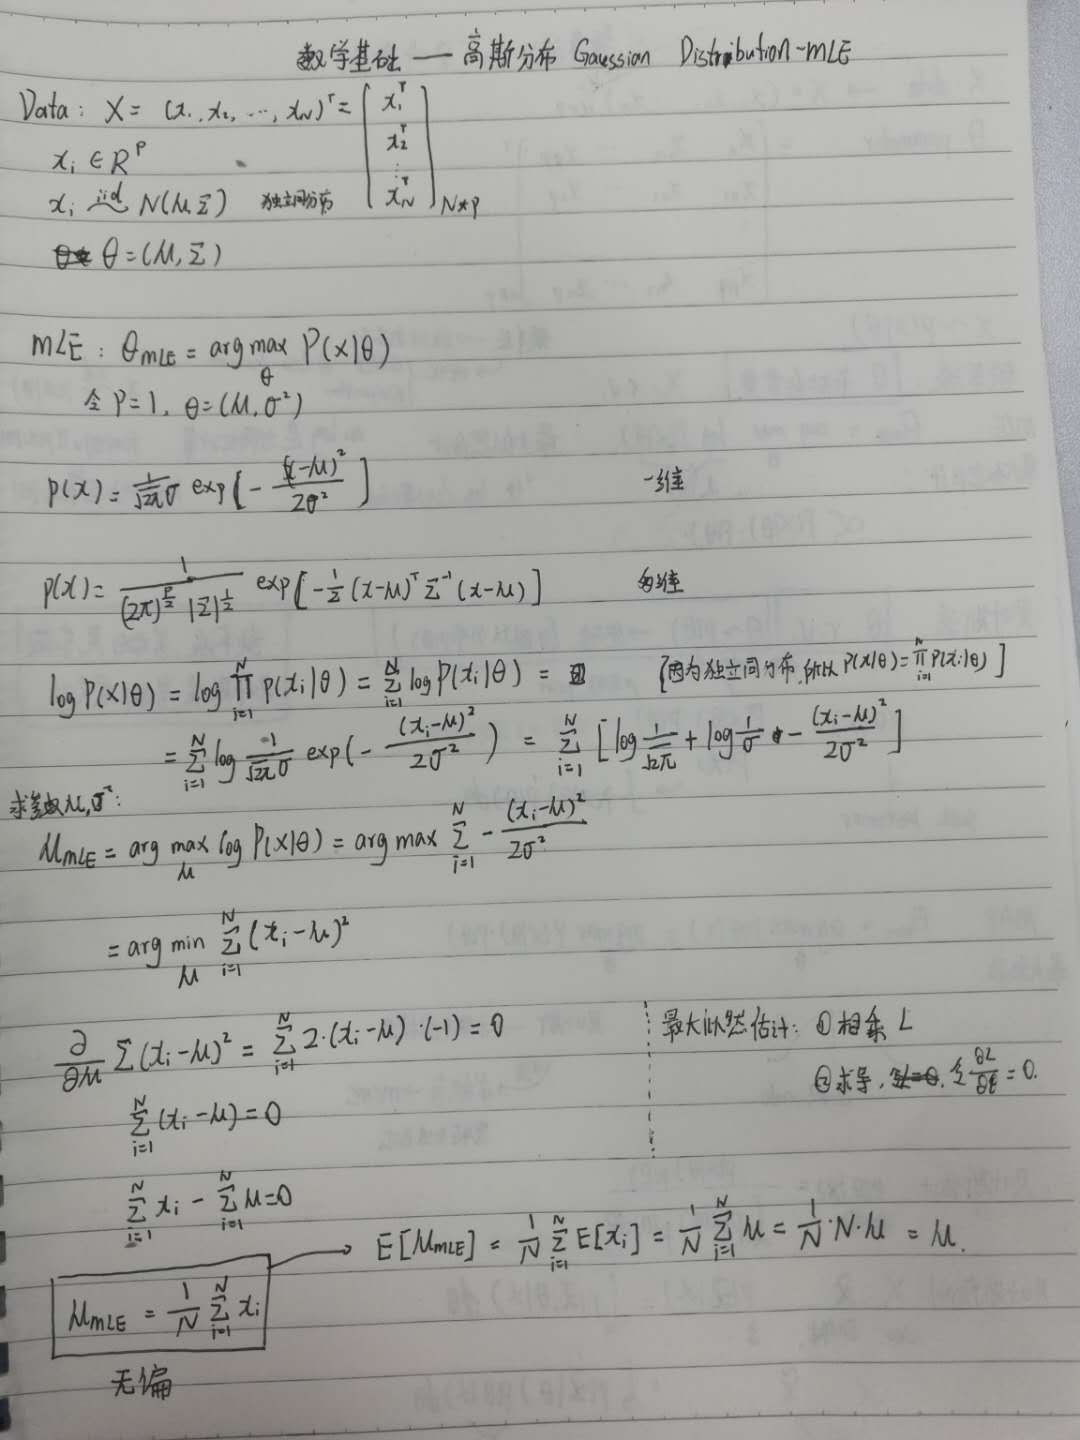 数学基础 —— 高斯分布 Gaussian Distribution-MLE
Data: X = (x₁, x₂, ⋯, x_N)ᵀ = [x₁ᵀ x₂ᵀ ⋮ x_Nᵀ]_{N*p}
xᵢ ∈ Rᵖ
xᵢ ~ⁱⁱᵈ N(μ, Σ) 独立同分布
θ = (μ, Σ)
MLE: θ_MLE = arg max_θ P(X|θ)
令 P=1, θ=(μ, σ²)
p(x) = 1/(√2π σ) exp[-(x-μ)²/2σ²] 一维
p(x) = 1/((2π)^{p/2} |Σ|^{1/2}) exp[-1/2 (x-μ)ᵀ Σ⁻¹ (x-μ)]
log P(X|θ) = log ∏_{i=1}^N p(xᵢ|θ) = Σ_{i=1}^N log P(xᵢ|θ) = [因为独立同分布,所以 P(X|θ) = ∏_{i=1}^N P(xᵢ|θ)]
= Σ_{i=1}^N log 1/(√2π σ) exp(-(xᵢ-μ)²/2σ²) = Σ_{i=1}^N [log 1/√2π + log 1/σ - (xᵢ-μ)²/2σ²]
求参数 μ, σ²:
μ_MLE = arg max_μ log P(X|θ) = arg max Σ_{i=1}^N -(xᵢ-μ)²/2σ²
= arg min_μ Σ_{i=1}^N (xᵢ-μ)²
∂/∂μ Σ(xᵢ-μ)² = Σ_{i=1}^N 2·(xᵢ-μ)·(-1) = 0
最大似然估计: ①相乘 L
②求导, 令 ∂L/∂θ = 0.
Σ_{i=1}^N (xᵢ-μ) = 0
Σ_{i=1}^N xᵢ - Σ_{i=1}^N μ = 0
E[μ_MLE] = 1/N Σ_{i=1}^N E[xᵢ] = 1/N Σ_{i=1}^N μ = 1/N·N·μ = μ.
μ_MLE = 1/N Σ_{i=1}^N xᵢ
无偏